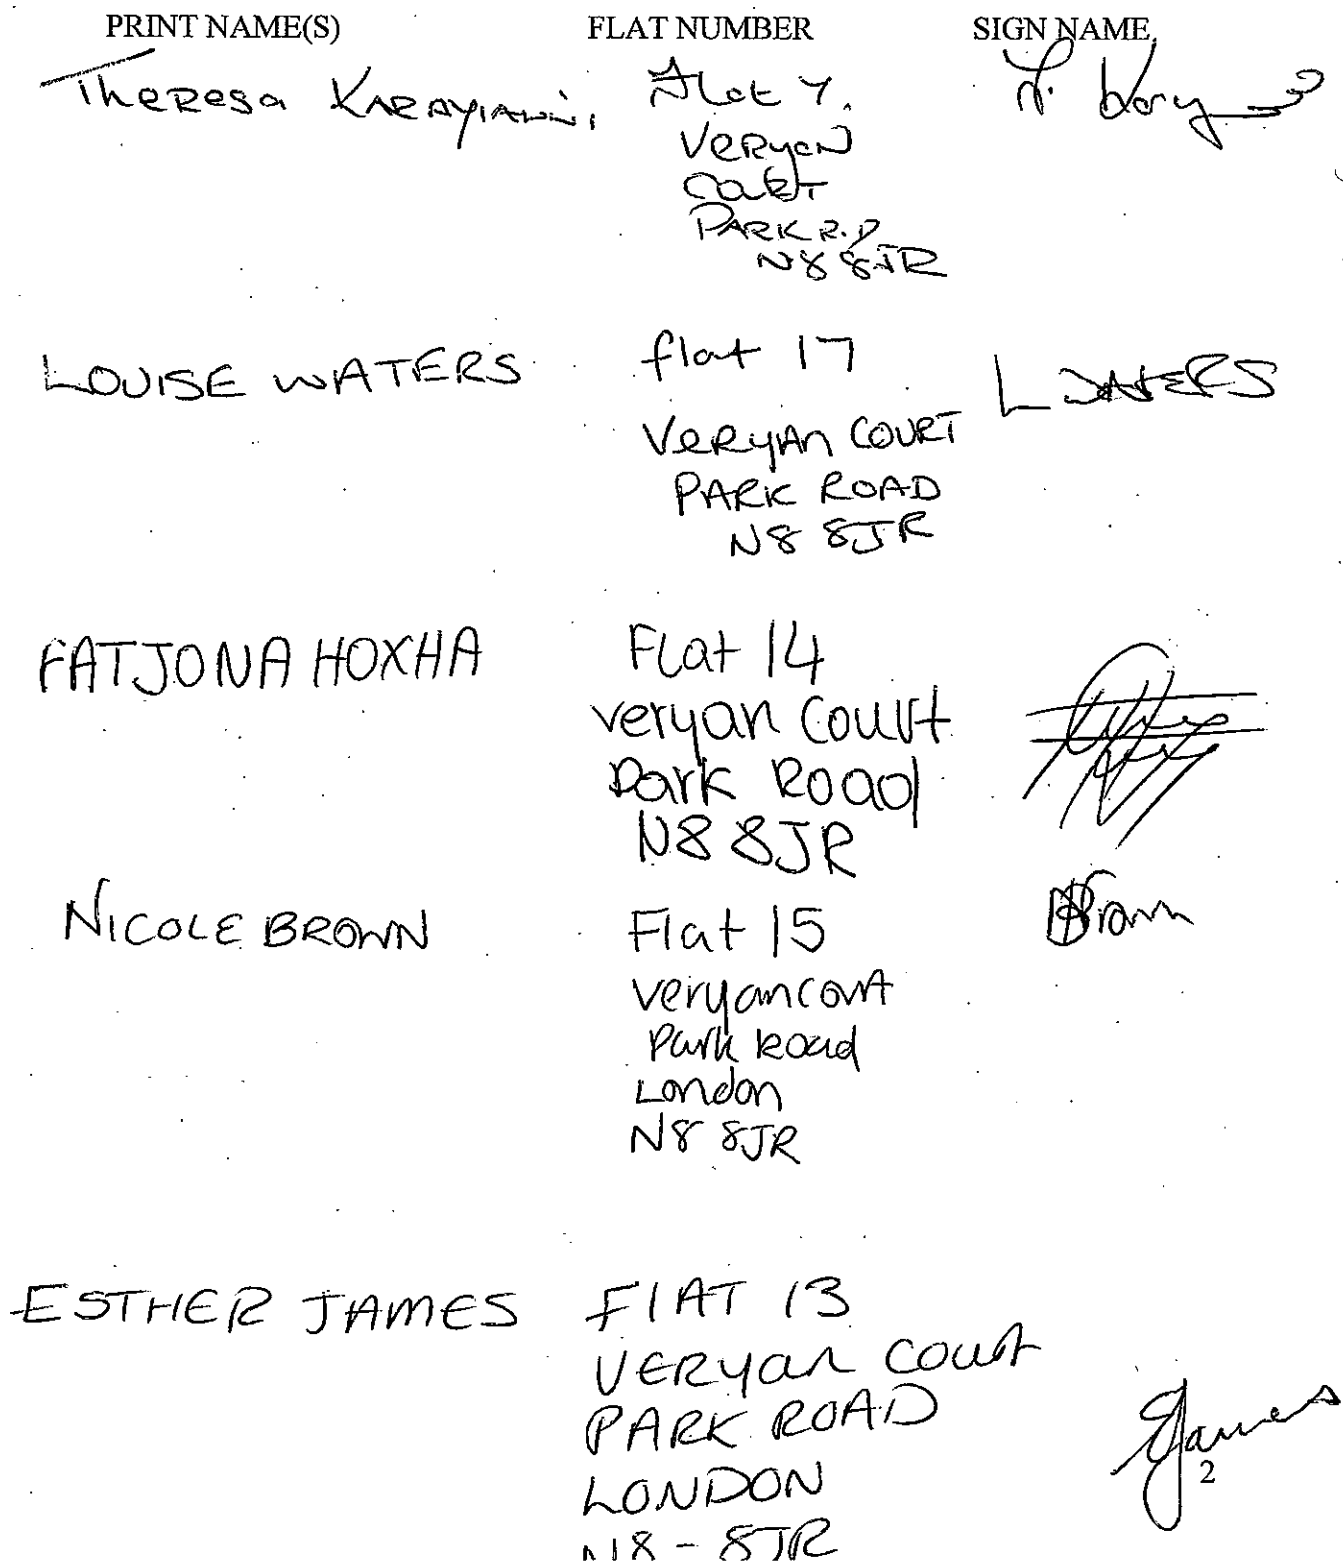 PRINT NAME(S) FLAT NUMBER SIGN NAME
Theresa KARAYIANNI, Flat 7,
VERYAN
COURT
PARK R.D
N8 8JR
LOUISE WATERS flat 17 L WATERS
VERYAN COURT
PARK ROAD
N8 8JR
FATJONA HOXHA Flat 14
veryan Court
Park Road
N8 8JR
NICOLE BROWN Flat 15 NBrown
veryan court
Park Road
London
N8 8JR
ESTHER JAMES FlAT 13
VERYan Court
PARK ROAD
EJames
LONDON
2
N8 - 8JR